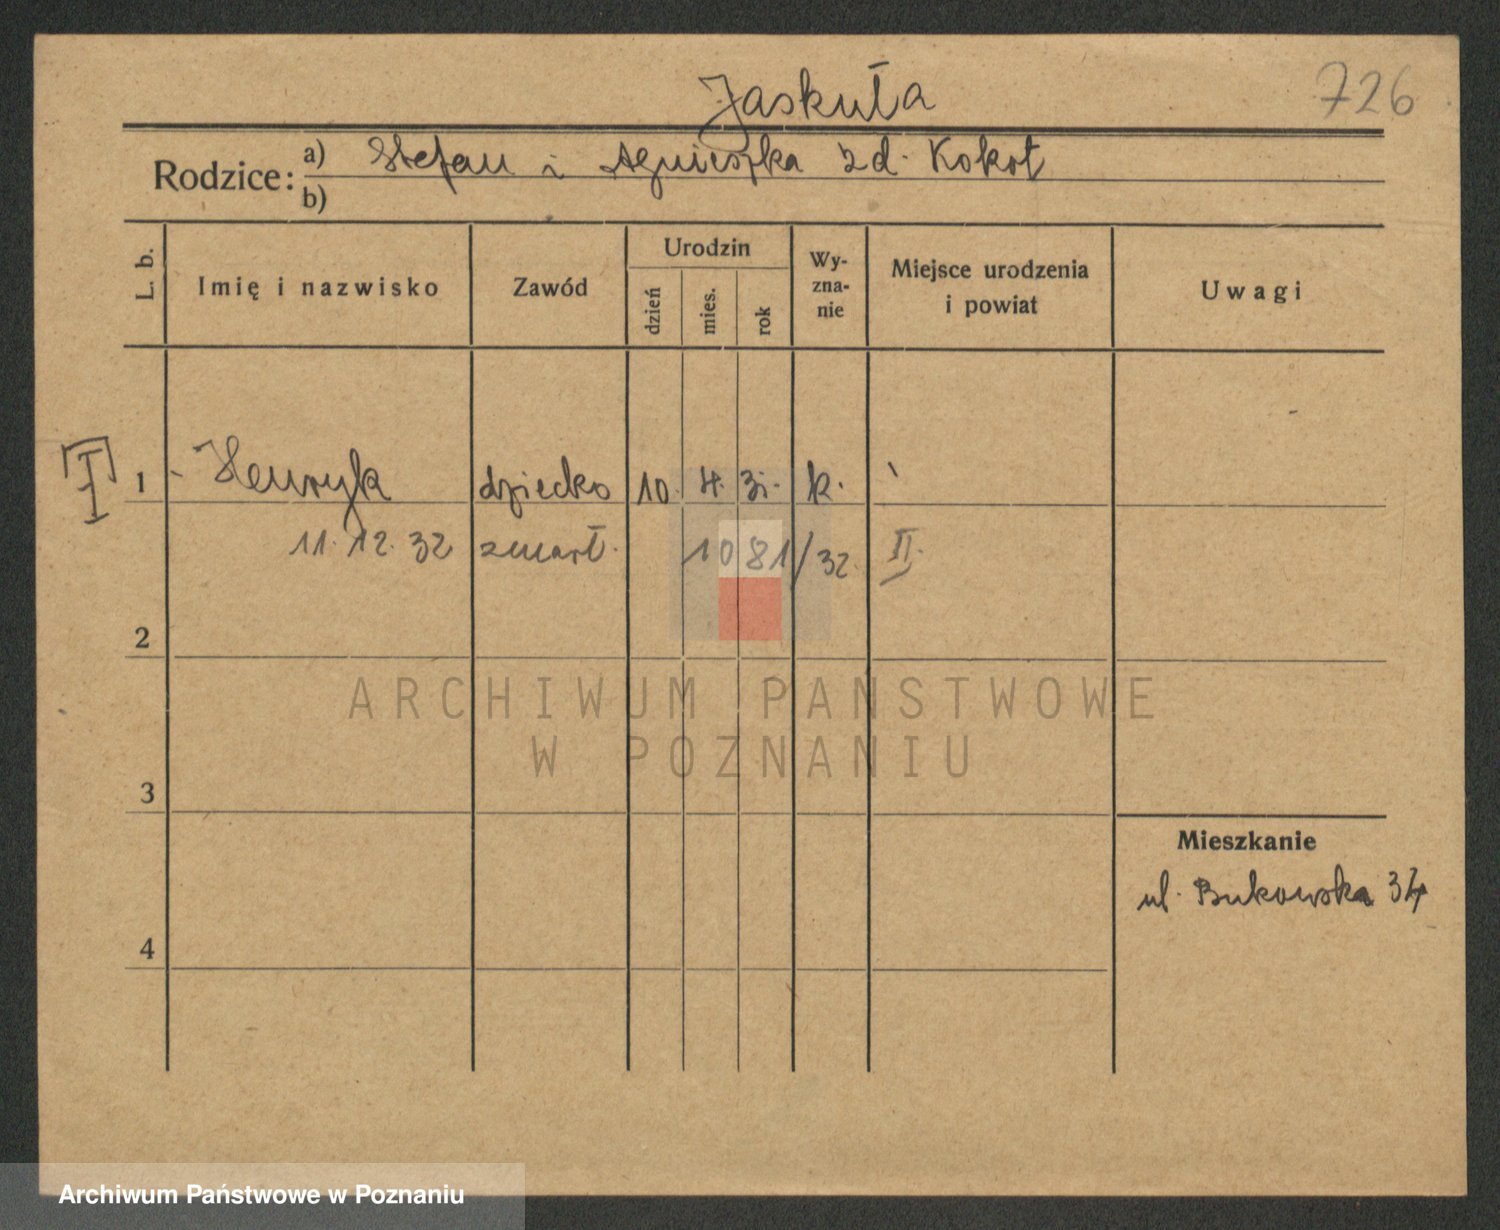 Jaskuła
726
Rodzice: a) Stefan i Agnieszka zd. Kokot
b)
L. b.
Imię i nazwisko
Zawód
Urodzin
dzień
mies.
rok
Wy-
zna-
nie
Miejsce urodzenia
i powiat
Uwagi
I 1 Henryk dziecko 10. 4. 31. k.
11. 12. 32 zmarł. 1081/32. II.
2
ARCHIWUM PAŃSTWOWE
W POZNANIU
3
Mieszkanie
ul. Bukowska 34
4
Archiwum Państwowe w Poznaniu